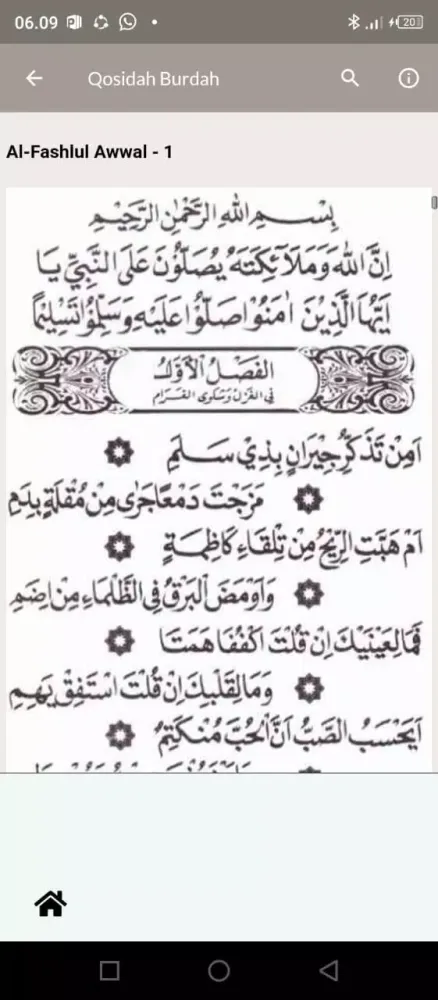 06.09
20
Qosidah Burdah
Al-Fashlul Awwal - 1
بِسْمِ اللهِ الرَّحْمٰنِ الرَّحِيْمِ
اِنَّ اللهَ وَمَلَآئِكَتَهُ يُصَلُّوْنَ عَلَى النَّبِيِّ يَا
اَيُّهَا الَّذِيْنَ اٰمَنُوْا صَلُّوْا عَلَيْهِ وَسَلِّمُوْا تَسْلِيْمًا
اَلْفَصْلُ الْاَوَّلُ
فِى الْغَزَلِ وَشَكْوَى الْغَرَامِ
اَمِنْ تَذَكُّرِ جِيْرَانٍ بِذِيْ سَلَمِ
مَزَجْتَ دَمْعًا جَرٰى مِنْ مُقْلَةٍ بِدَمِ
اَمْ هَبَّتِ الرِّيْحُ مِنْ تِلْقَاءِ كَاظِمَةٍ
وَاَوْمَضَ الْبَرْقُ فِى الظَّلْمَاءِ مِنْ اِضَمِ
فَمَا لِعَيْنَيْكَ اِنْ قُلْتَ اكْفُفَا هَمَتَا
وَمَا لِقَلْبِكَ اِنْ قُلْتَ اسْتَفِقْ يَهِمِ
اَيَحْسَبُ الصَّبُّ اَنَّ الْحُبَّ مُنْكَتِمٌ